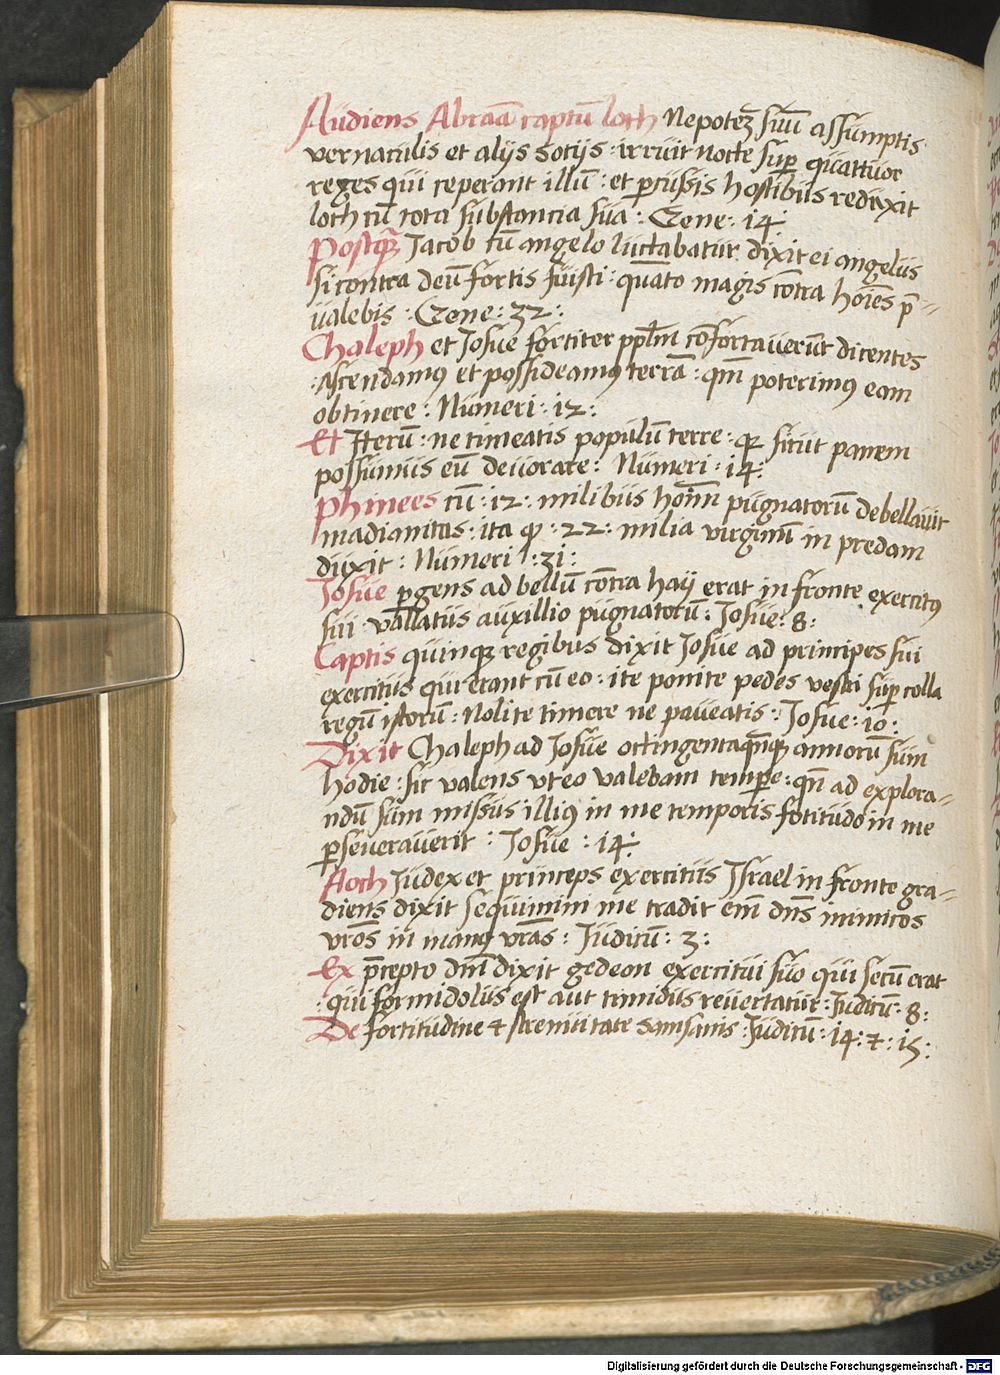 Audiens Abraā captū loth Nepotē suū assumptis
vernaculis et alijs Socijs : irruit nocte sup̄ quattuor
reges qui ceperant illū : et p̄cussis hostibus reduxit
loth cū tota substancia sua : Gene : 14 :
Postq̄ Jacob cū angelo luctabatur dixit ei angelus
si contra deū fortis fuisti : quāto magis cōtra hoīes p̄=
ualebis : Gene : 32 :
Chaleph et Josue fortiter pplm cōfortauerūt dicentes
: Ascendamꝰ et possideamꝰ terrā : qm̄ poterimꝰ eam
obtinere : Numeri : 12 :
Et Iterū : ne timeatis populū terre : qꝛ sicut panem
possumus eū deuorare : Numeri : 14 :
Phinees cū : 12 : milibus hoīm pugnatorū debellauit
madianitas : ita ꝙ : 22 : milia virginū in predam
duxit : Numeri : 31 :
Josue p̄gens ad bellū cōtra hay erat in fronte exercitꝰ
sui vallatus auxillio pugnatorū : Josue : 8 :
Captis quinqꝫ regibus dixit Josue ad principes sui
exercitus qui erant cū eo : ite ponite pedes vestri sup̄ colla
regū istorū : Nolite timere ne paueatis : Josue : 10 :
Dixit Chaleph ad Josue octingentaqn̄qꝫ annorū sum
hodie : sic valens vt eo valebam tempore : qn̄ ad explora=
ndū sum missus illiꝰ in me temporis fotitudo in me
p̄seuerauerit : Josue : 14 :
Aoth Iudex et princeps exercitus Israel in fronte gra=
diens dixit sequimini me tradit em̄ dn̄s inimicos
vrōs in manꝰ vrās : Iudicū : 3 :
Ex p̄cepto dn̄i dixit gedeon exercitui suo qui secū erat
: qui formidolus est aut timidus reuertatur : Iudicū : 8 :
De fortitudine & strenuitate Samsanis : Iudicū : 14 : & : 15 :
Digitalisierung gefördert durch die Deutsche Forschungsgemeinschaft - DFG